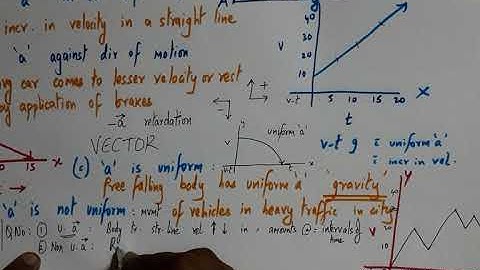 incr. in velocity in a straight line
'a' against dir of motion
car comes to lesser velocity or rest
by application of brakes
-a⃗ retardation
VECTOR
+
-
40
30
20
10
v
v-t
5 10 15 20 x
t
v
v-t
t
uniform 'a'
v-t g c̄ uniform 'a'
c̄ incr in vel.
15 x
(c) 'a' is uniform :
free falling body has uniform 'a' 'gravity'
'a' is not uniform : mvmt of vehicles in heavy traffic in city
Q.No: ① U. a⃗ : Body tr. str-line vel ↑ ↓ in , amounts @ = intervals of time
② Non u. a⃗ : B
Y
40
30
V
20
10